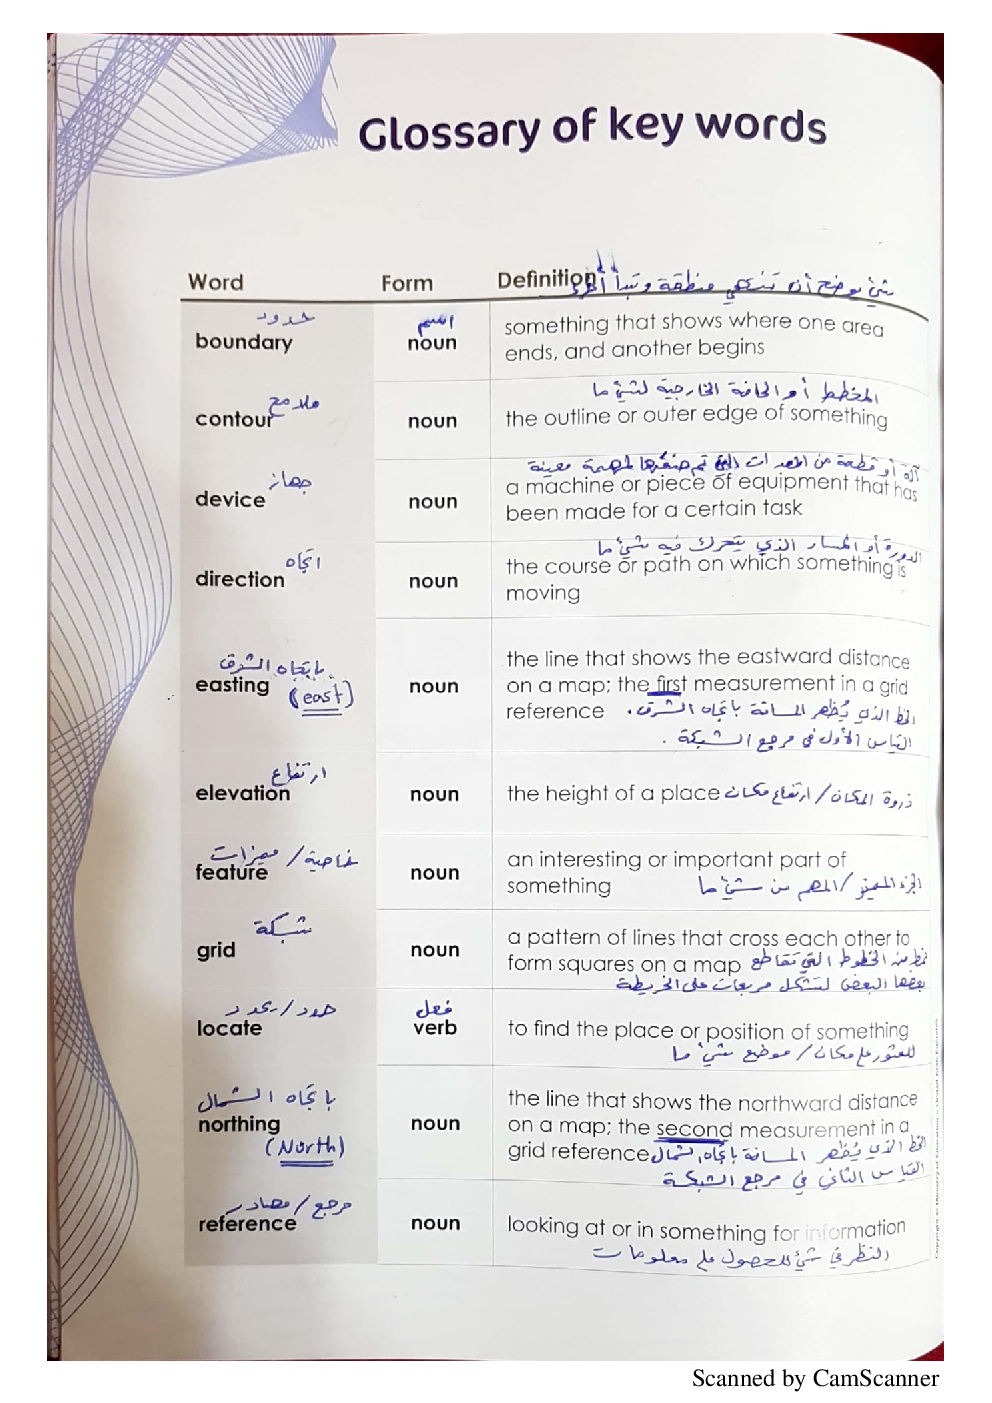 Glossary of key words
Word Form Definition
شيء يوضح أنه تنتهي منطقة وتبدأ أخرى
حدود اسم
boundary noun something that shows where one area
ends, and another begins
المخطط أو الحافة الخارجية لشيء ما
ملامح
contour noun the outline or outer edge of something
آلة أو قطعة من المعدات التي تم صنعها لمهمة معينة
جهاز
device noun a machine or piece of equipment that has
been made for a certain task
الدورة أو المسار الذي يتحرك فيه شيء ما
اتجاه
direction noun the course or path on which something is
moving
باتجاه الشرق
easting (east) noun the line that shows the eastward distance
on a map; the first measurement in a grid
reference الخط الذي يُظهر المسافة باتجاه الشرق.
القياس الأول في مرجع الشبكة.
ارتفاع
elevation noun the height of a place ذروة المكان / ارتفاع مكان
خاصية / مميزات
feature noun an interesting or important part of
something الجزء المميز / المهم من شيء ما
شبكة
grid noun a pattern of lines that cross each other to
form squares on a map نمط من الخطوط التي تقاطع
بعضها البعض لتشكل مربعات على الخريطة
حدد / يحدد فعل
locate verb to find the place or position of something
للعثور على مكان / موضع شيء ما
باتجاه الشمال
northing (North) noun the line that shows the northward distance
on a map; the second measurement in a
grid reference الخط الذي يُظهر المسافة باتجاه الشمال
القياس الثاني في مرجع الشبكة
مرجع / مصادر
reference noun looking at or in something for information
النظر في شيء للحصول على معلومات
Scanned by CamScanner